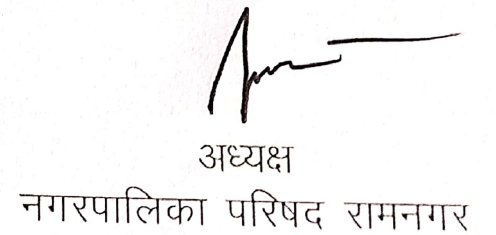 अध्यक्ष
नगरपालिका परिषद रामनगर